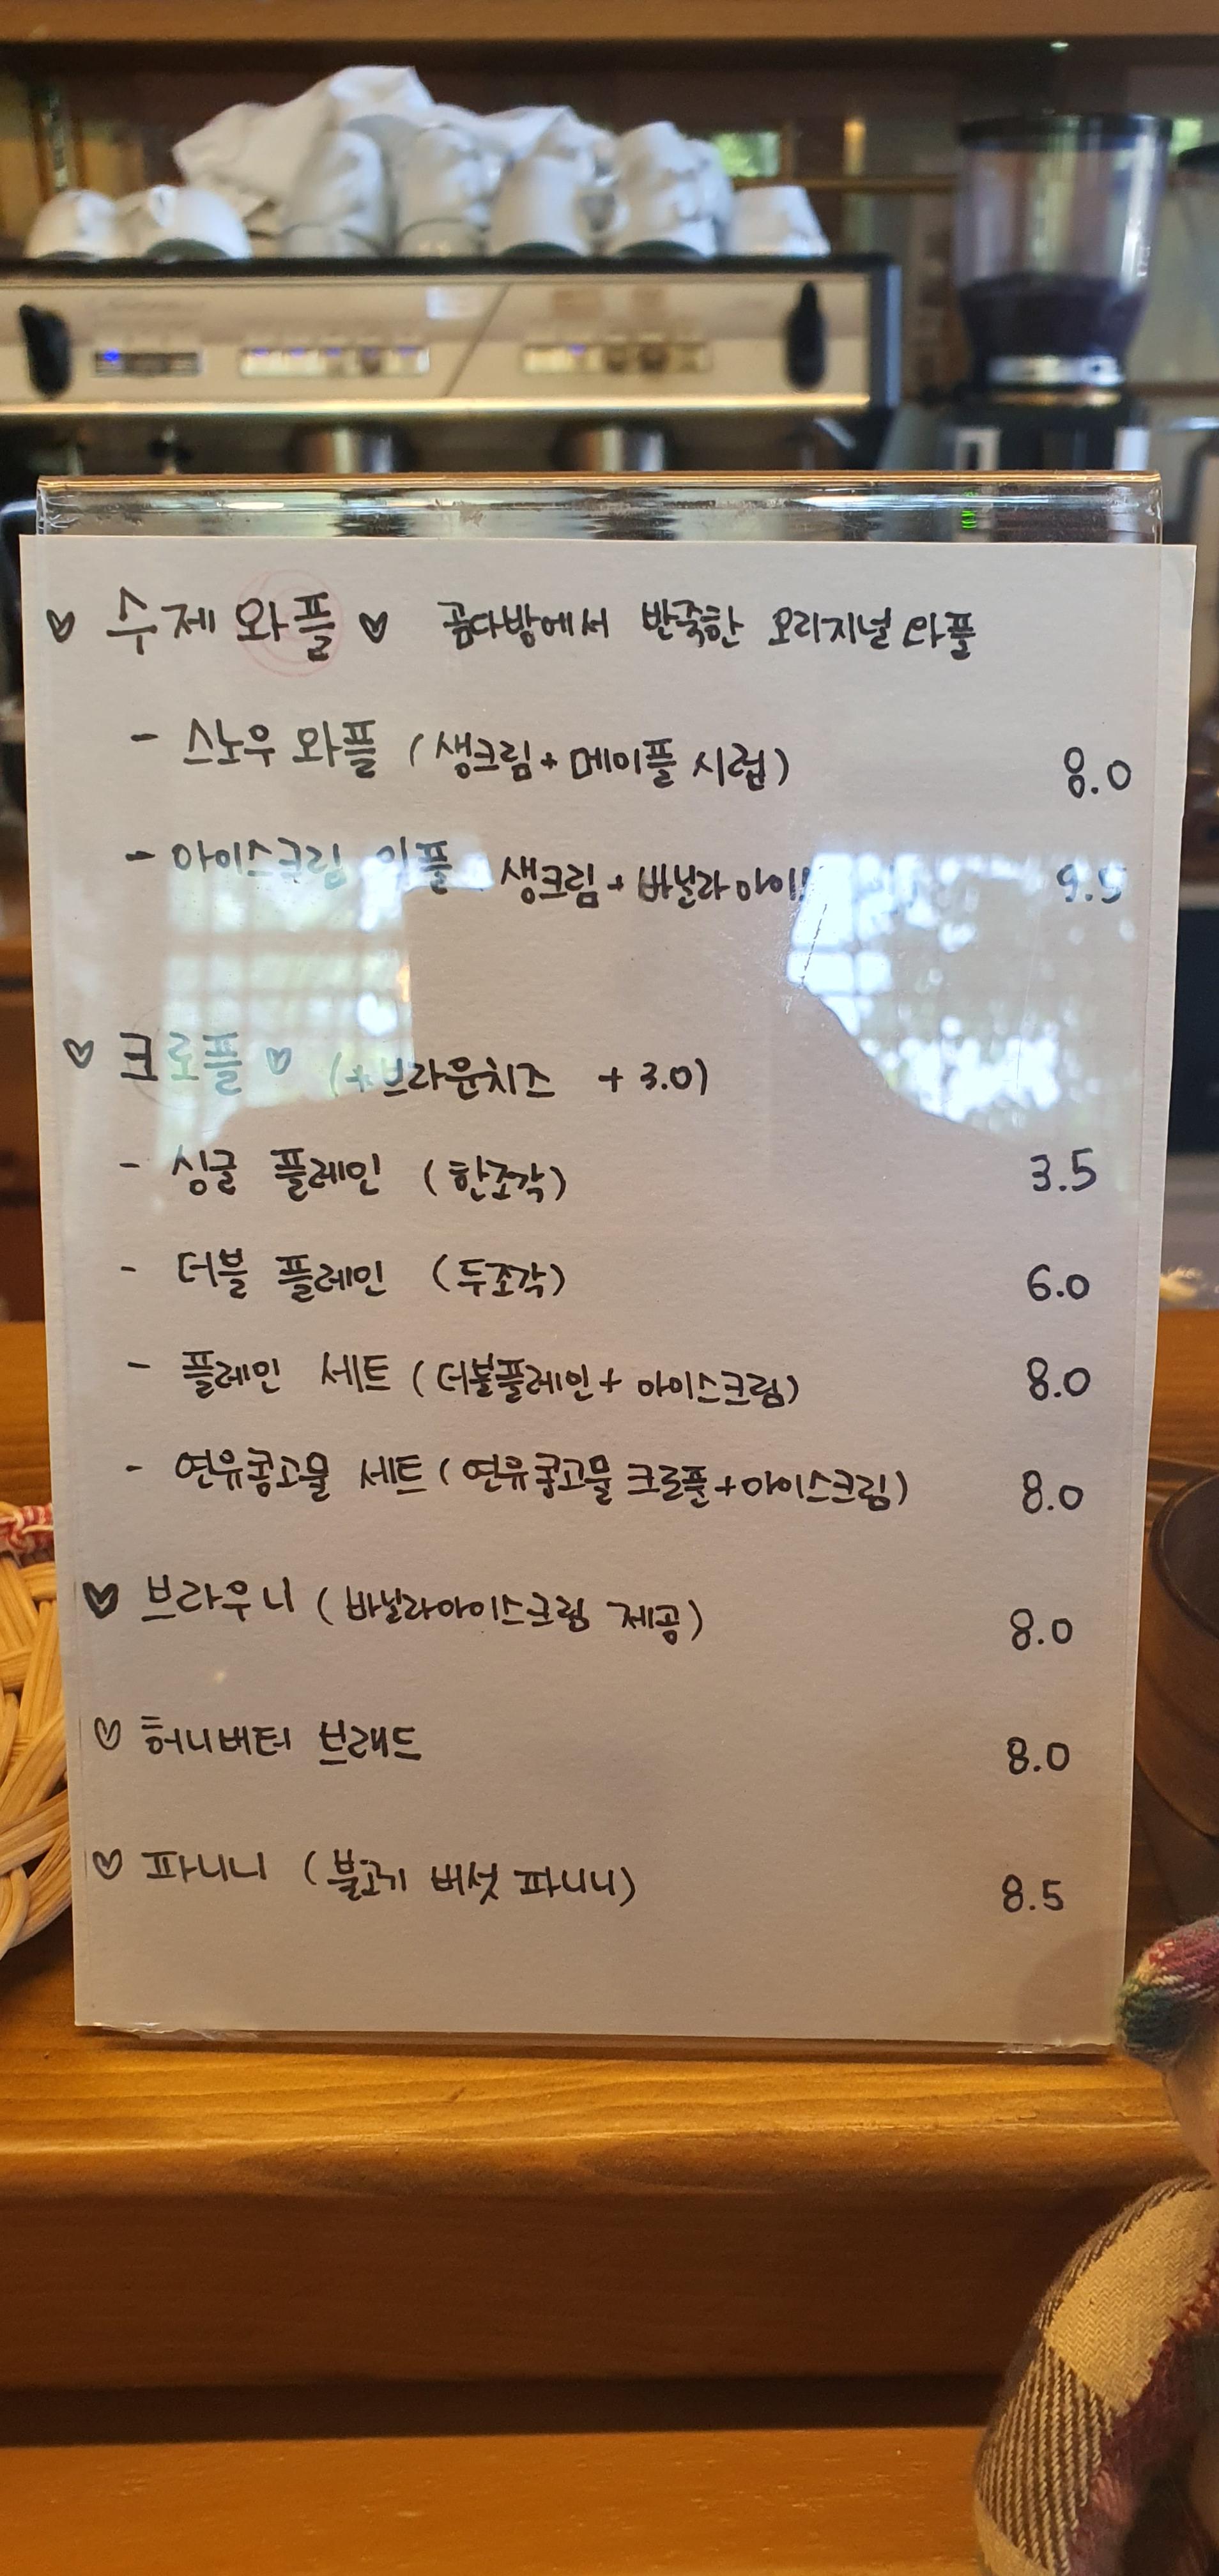 ♡ 수제 와플 ♡ 곰다방에서 반죽한 오리지널 와플
- 스노우 와플 (생크림+메이플 시럽) 8.0
- 아이스크림 와플 생크림+바닐라 9.5
♡ 크로플 ♡ (+브라운치즈 +3.0)
- 싱글 플레인 (한조각) 3.5
- 더블 플레인 (두조각) 6.0
- 플레인 세트 (더블플레인+아이스크림) 8.0
- 연유콩고물 세트 (연유콩고물 크로플+아이스크림) 8.0
♥ 브라우니 (바닐라아이스크림 제공) 8.0
♡ 허니버터 브래드 8.0
♡ 파니니 (불고기 버섯 파니니) 8.5